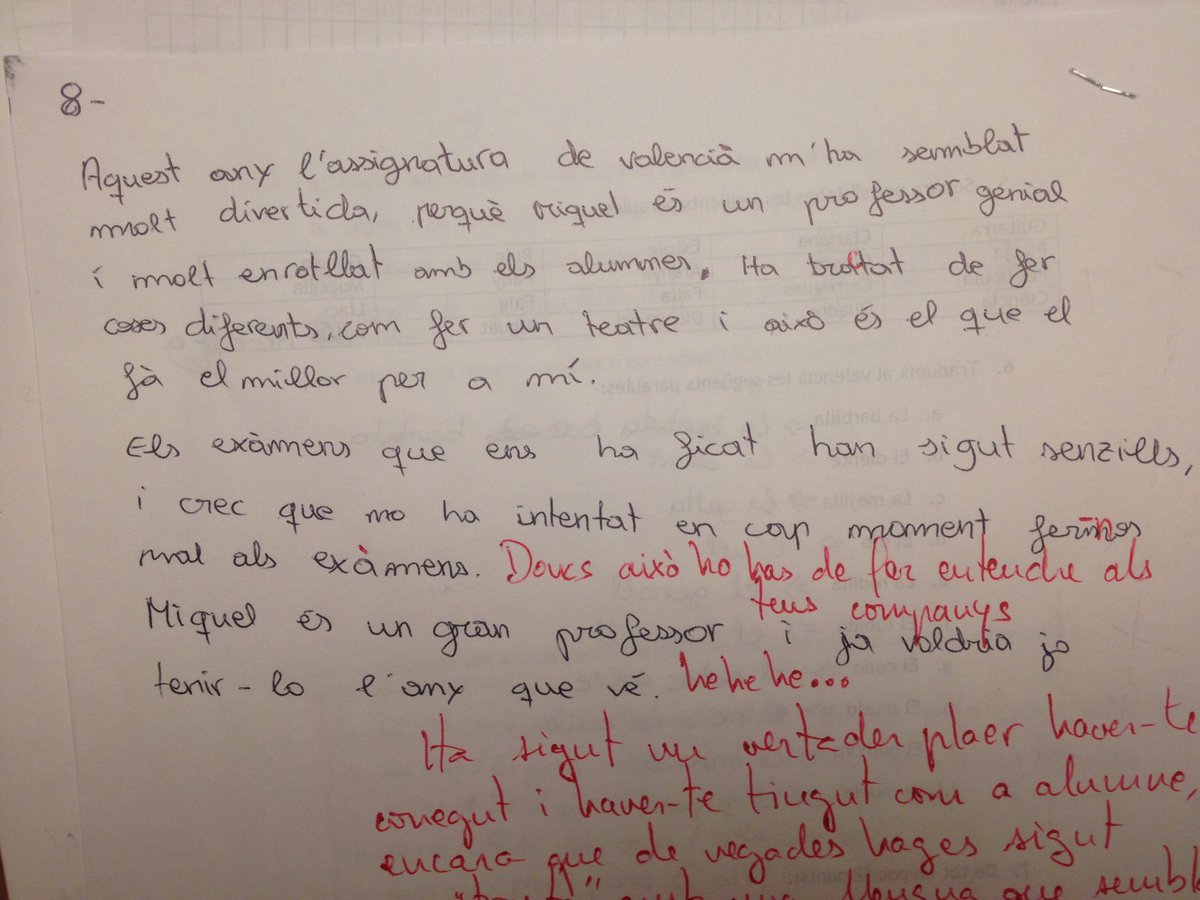 8-
Aquest any l'assignatura de valencià m'ha semblat
molt divertida, perquè miquel és un professor genial
i molt enrotllat amb els alumnes. Ha tractat de fer
coses diferents, com fer un teatre i això és el que el
fà el millor per a mí.
Els exàmens que ens ha ficat han sigut senzills,
i crec que no ha intentat en cap moment fer-nos
mal als exàmens. Doncs això ho has de fer entendre als
teus companys
Miquel és un gran professor i ja voldria jo
tenir-lo l'any que vé. hehehe...
Ha sigut un vertader plaer haver-te
conegut i haver-te tingut com a alumne,
encara que de vegades hages sigut
amb una llengua que sembl